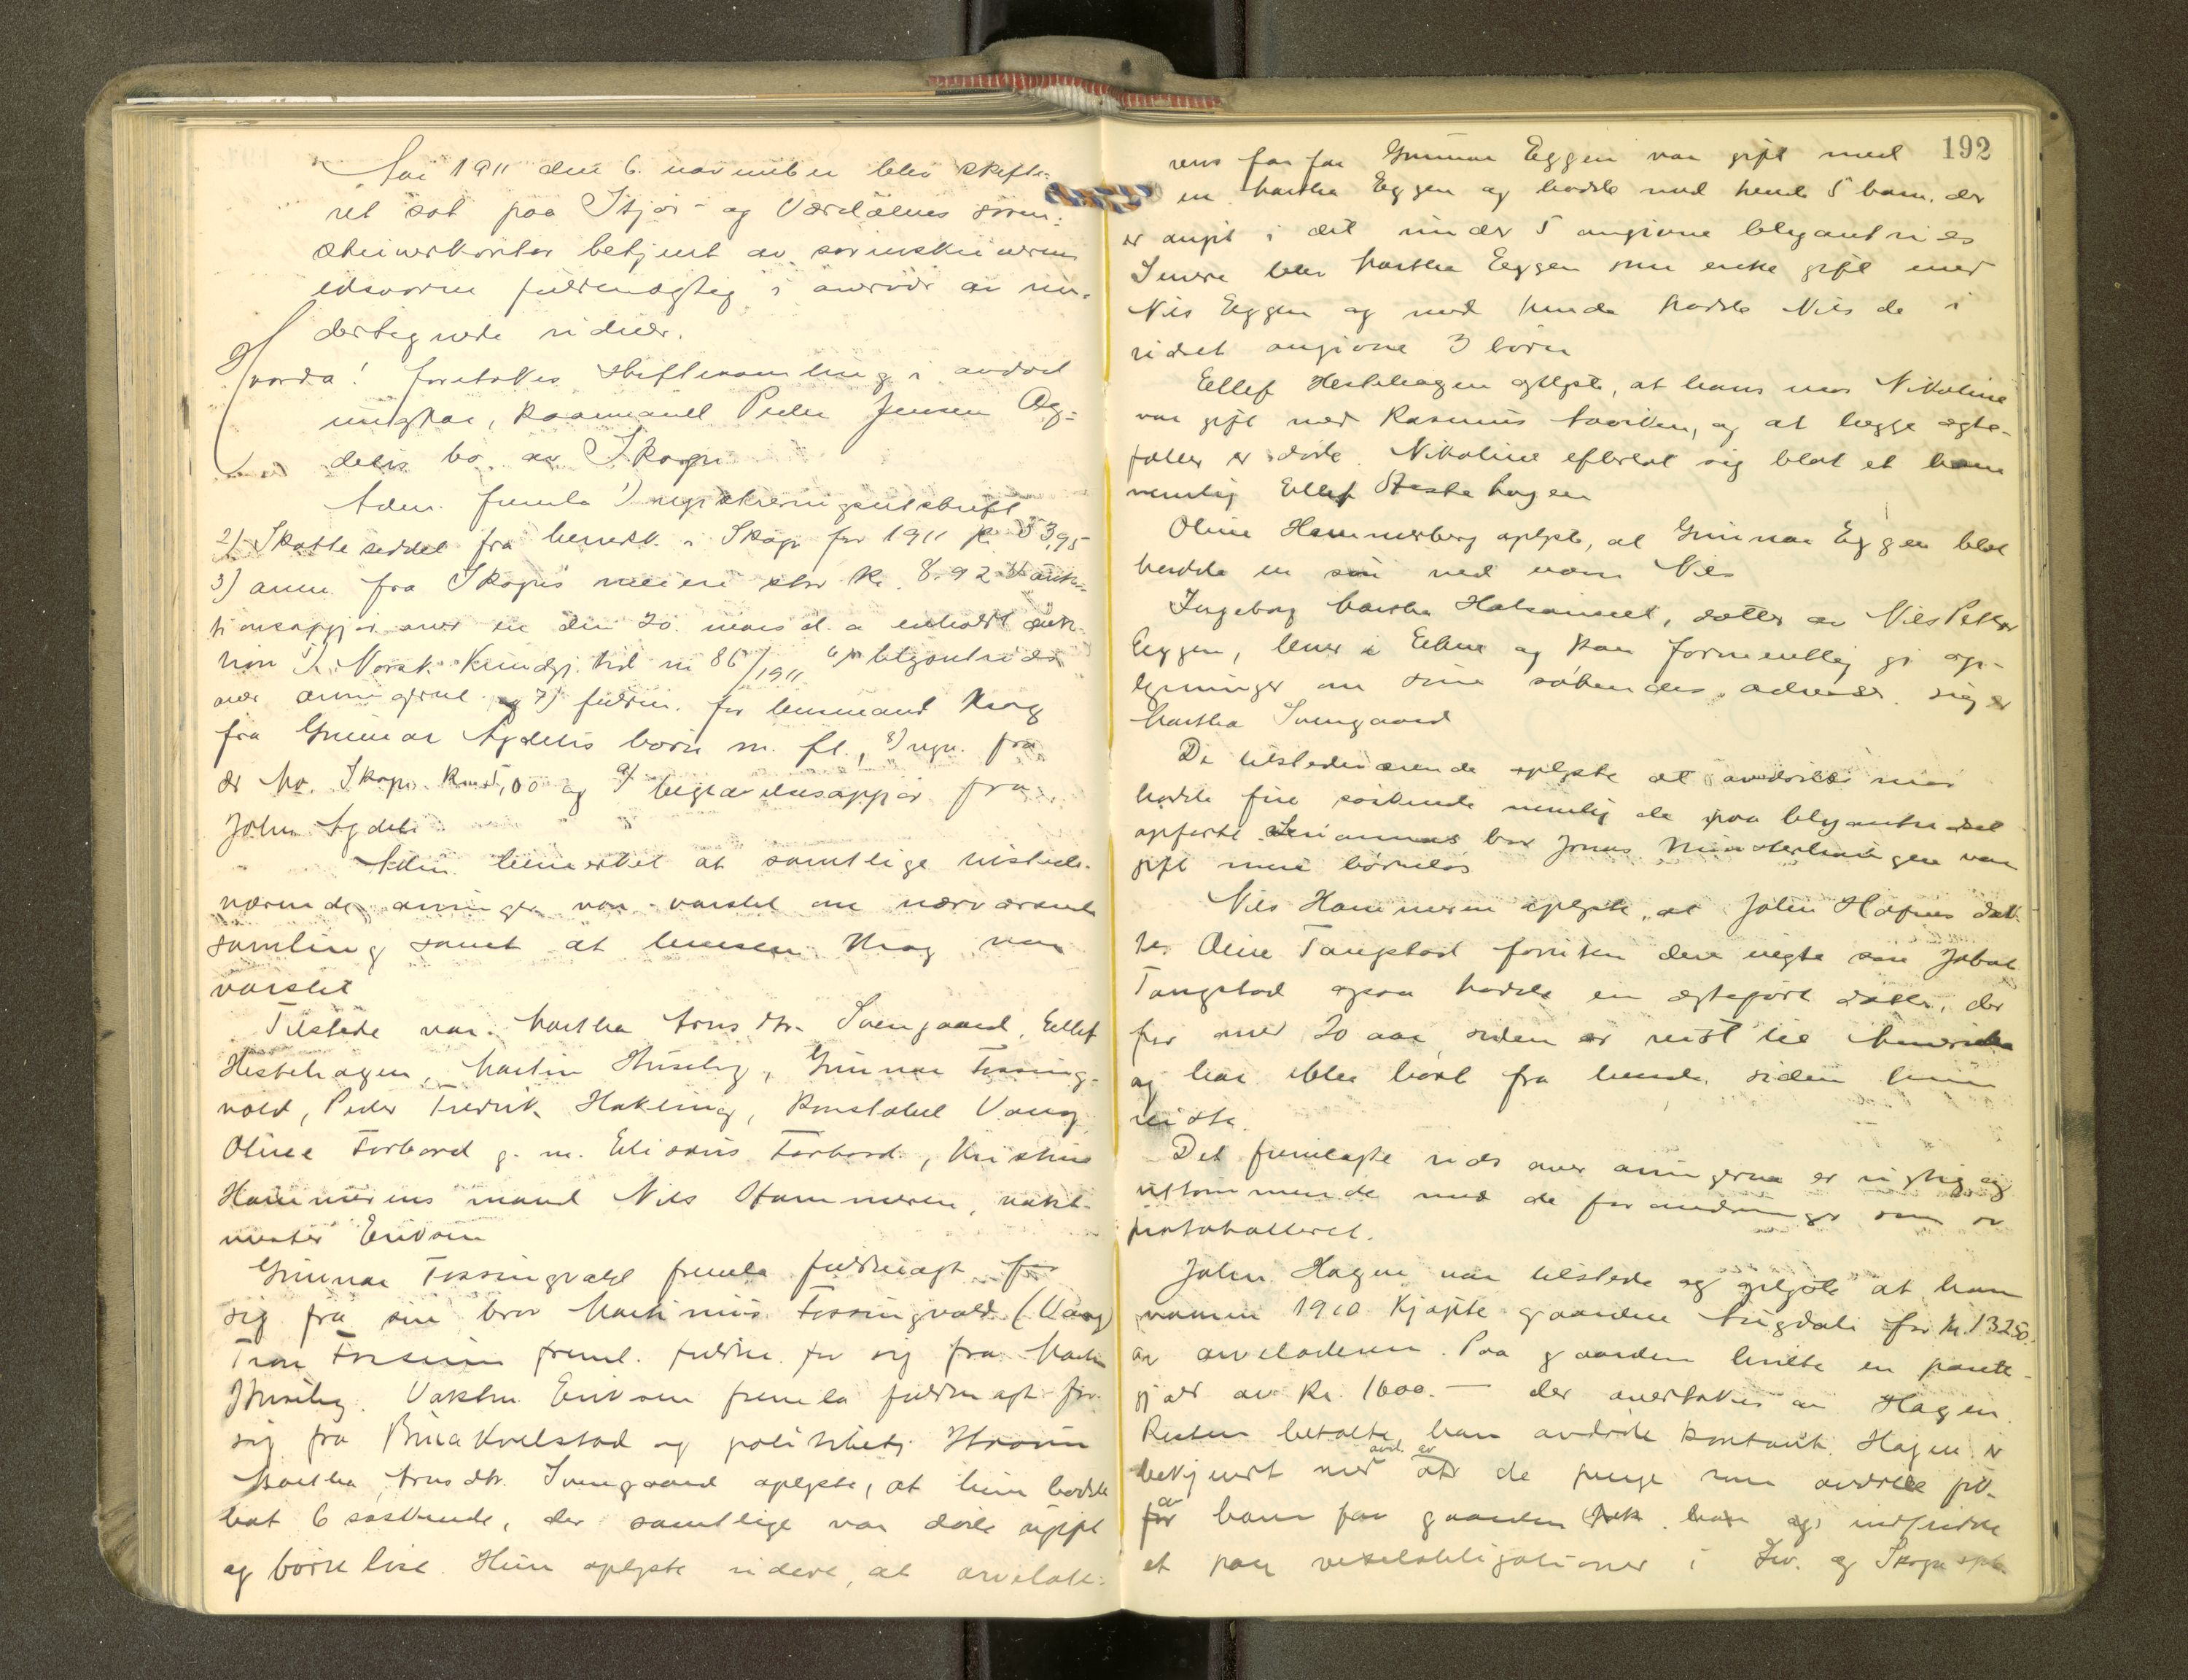 Aar 1911 den 6. november blev skifte-
ret sat paa Stjør- og Værdalens soren-
skriverkontor betjent av sorenskriverens
edsvorne fuldmægtig i overvær av un-
dertegnede vidner.
Hvorda! foretokes skiftesamling i avdød
ungkar, kaarmand Peder Jensen Ag-
delis bo av Skogn
Adm. fremla 1) registreringsutskrift
2) Skatteseddel fra herredsk. i Skogn for 1911 kr. 33,95
3) anm. fra Skogns meieri stor kr. 8.92 4) auk-
tionsopgjør over en den 20. mars d. a. avholdt auk-
tion 5) Norsk Kundgj. tid nr 86/1911 6) blyantrids
over arvingerne og 7) fuldm. for lensmand Krog
fra Gunnar Agdelis børn m. fl., 8) regn. fra
dr Skogn kr. 5,00 og 9) begravelsesopgjør fra
John Agdeli
Adm. bemerket at samtlige tilstede-
værende arvinger var varslet om nærværende
samling samt at lensm. Krog var
varslet
Tilstede var Martha Arnsdtr. Svengaard, Ellef
Hestehagen, Martin Huseby, Gunnar Fossing-
vold, Peder Fredrik Hokling, konstabel Vang
Oline Forbord g. m. Elisæus Forbord, Kristine
Hammerens mand Nils Hammeren, vakt-
mester Eriksen
Gunnar Fossingvold fremla fuldmagt for
sig fra sin bror Martinus Fossingvold (Vang)
freml. fuldm. for sig fra Martin
Huseby. Vaktm. Eriksen fremla fuldmagt for
sig fra Kvelstad og politibetj.
Martha Arnsdtr. Svengaard oplyste, at hun hadde
hat 6 søskende, der samtlige var døde ugift
og barnløse. Hun oplyste videre, at arvelate-
192
rens farfar Gunnar Eggen var gift med
en Martha Eggen og hadde med hende 5 barn, der
er angit i det under 5 angivne blyantrids
Senere blev Martha Eggen som enke gift med
Nils Eggen og med hende hadde Nils de i
ridset angivne 3 børn
Ellef Hestehagen oplyste, at hans mor Nikoline
var gift med Rasmus, og at begge egte-
fæller er døde. Nikoline efterlot sig blot et barn
nemlig Ellef Hestehagen
Oline Hammerberg oplyste, at Gunnar Eggen blot
hadde en søn ved navn Nils
Ingeborg Martha, datter av Nils Petter
Eggen, lever i og kan formentlig gi op-
lysninger om sine søkendes adresser. sig er
Martha Svengaard
De tilstedeværende oplyste at avdødes mor
hadde fire søskende nemlig de paa blyantridset
opførte. bror Jonas var
gift men barnløs
Nils Hammeren oplyste, at John dat-
ter Oline Tangstad foruten den uegte søn Johan
Tangstad ogsaa hadde en egtefødt datter, der
for over 20 aar siden er reist til Amerika
og har ikke hørt fra hende siden hun
reiste.
Det fremlagte rids over arvingerne er rigtig og
uttømmende med de forandringer som er
protokolleret.
John Hagen var tilstede og oplyste at han
vaaren 1910 kjøpte gaarden for kr. 13250.
av arveladeren. Paa gaarden heftet en pante-
gjæld av kr. 1600.— der overtokes av Hagen.
Resten betalte han avdøde kontant. Hagen er
bekjendt med at avd. av de penge som avdøde fik
av ham for gaarden indfridde
et par vekselobligationer i Lev. og Skogn spb.